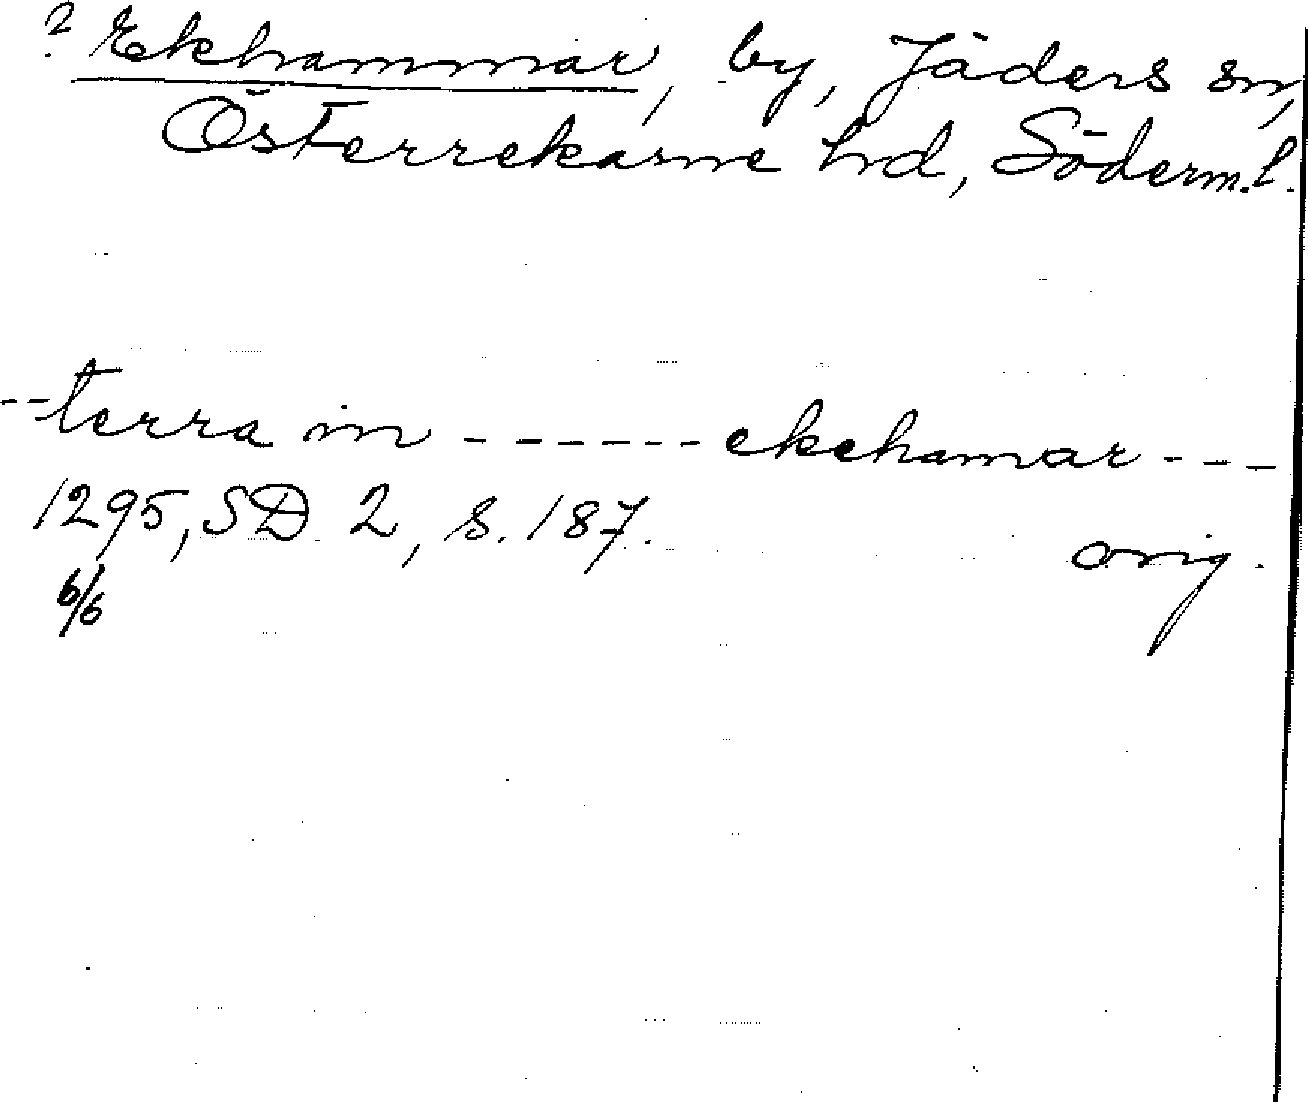 ? Ekhammar, by, Jäders sn,
Österrekarne hd, Söderm.l.
--terra in ------ ekehamar ---
1295, SD 2, s. 187. orig.
6/6